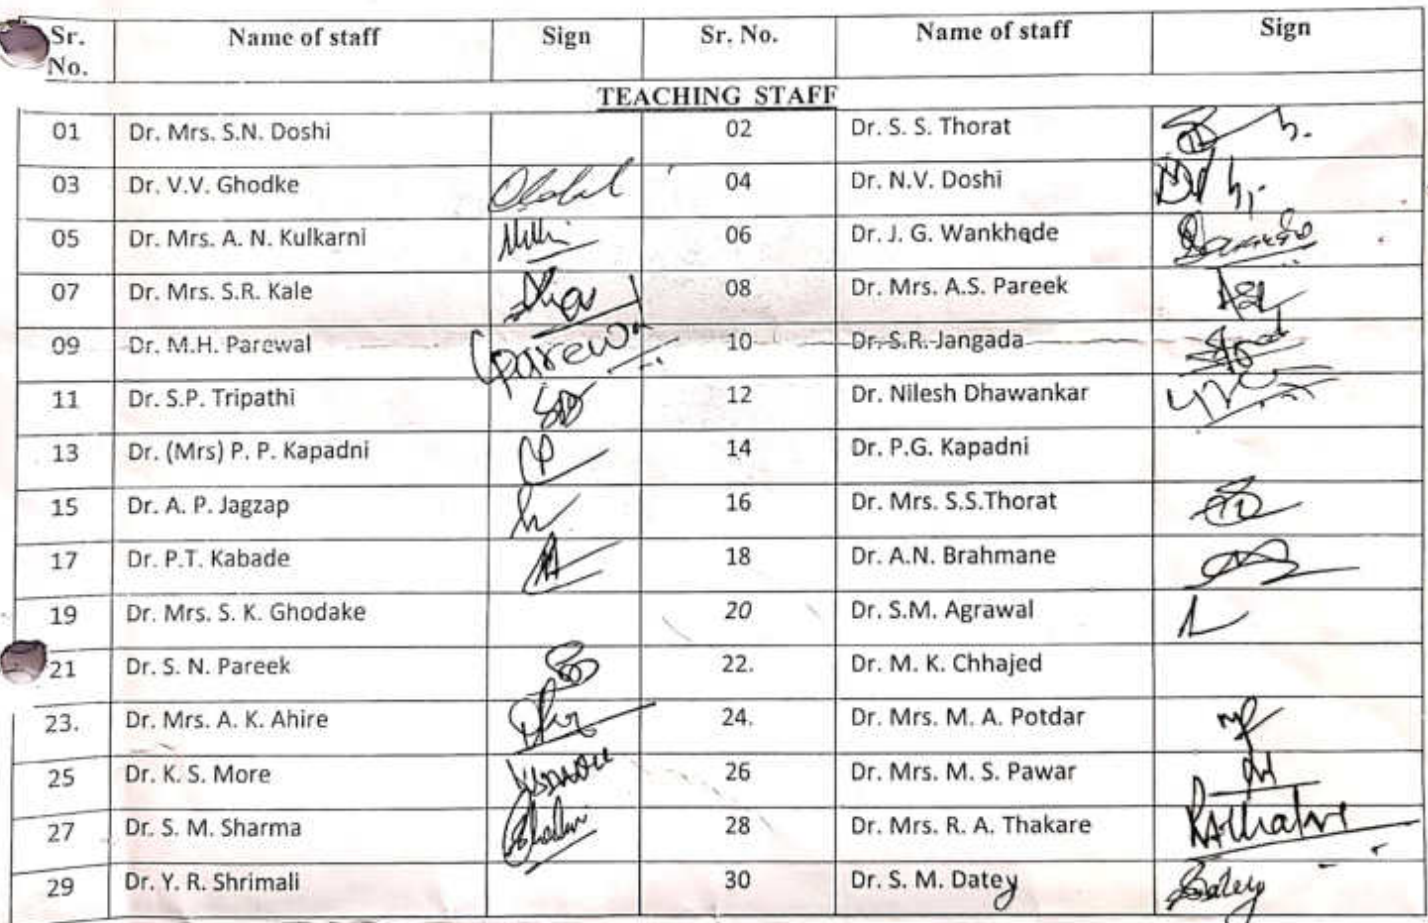 Sr. No. Name of staff Sign Sr. No. Name of staff Sign
TEACHING STAFF
01 Dr. Mrs. S.N. Doshi 02 Dr. S. S. Thorat
03 Dr. V.V. Ghodke 04 Dr. N.V. Doshi
05 Dr. Mrs. A. N. Kulkarni 06 Dr. J. G. Wankhede
07 Dr. Mrs. S.R. Kale 08 Dr. Mrs. A.S. Pareek
09 Dr. M.H. Parewal 10 Dr. S.R. Jangada
11 Dr. S.P. Tripathi 12 Dr. Nilesh Dhawankar
13 Dr. (Mrs) P. P. Kapadni 14 Dr. P.G. Kapadni
15 Dr. A. P. Jagzap 16 Dr. Mrs. S.S.Thorat
17 Dr. P.T. Kabade 18 Dr. A.N. Brahmane
19 Dr. Mrs. S. K. Ghodake 20 Dr. S.M. Agrawal
21 Dr. S. N. Pareek 22. Dr. M. K. Chhajed
23. Dr. Mrs. A. K. Ahire 24. Dr. Mrs. M. A. Potdar
25 Dr. K. S. More 26 Dr. Mrs. M. S. Pawar
27 Dr. S. M. Sharma 28 Dr. Mrs. R. A. Thakare
29 Dr. Y. R. Shrimali 30 Dr. S. M. Datey